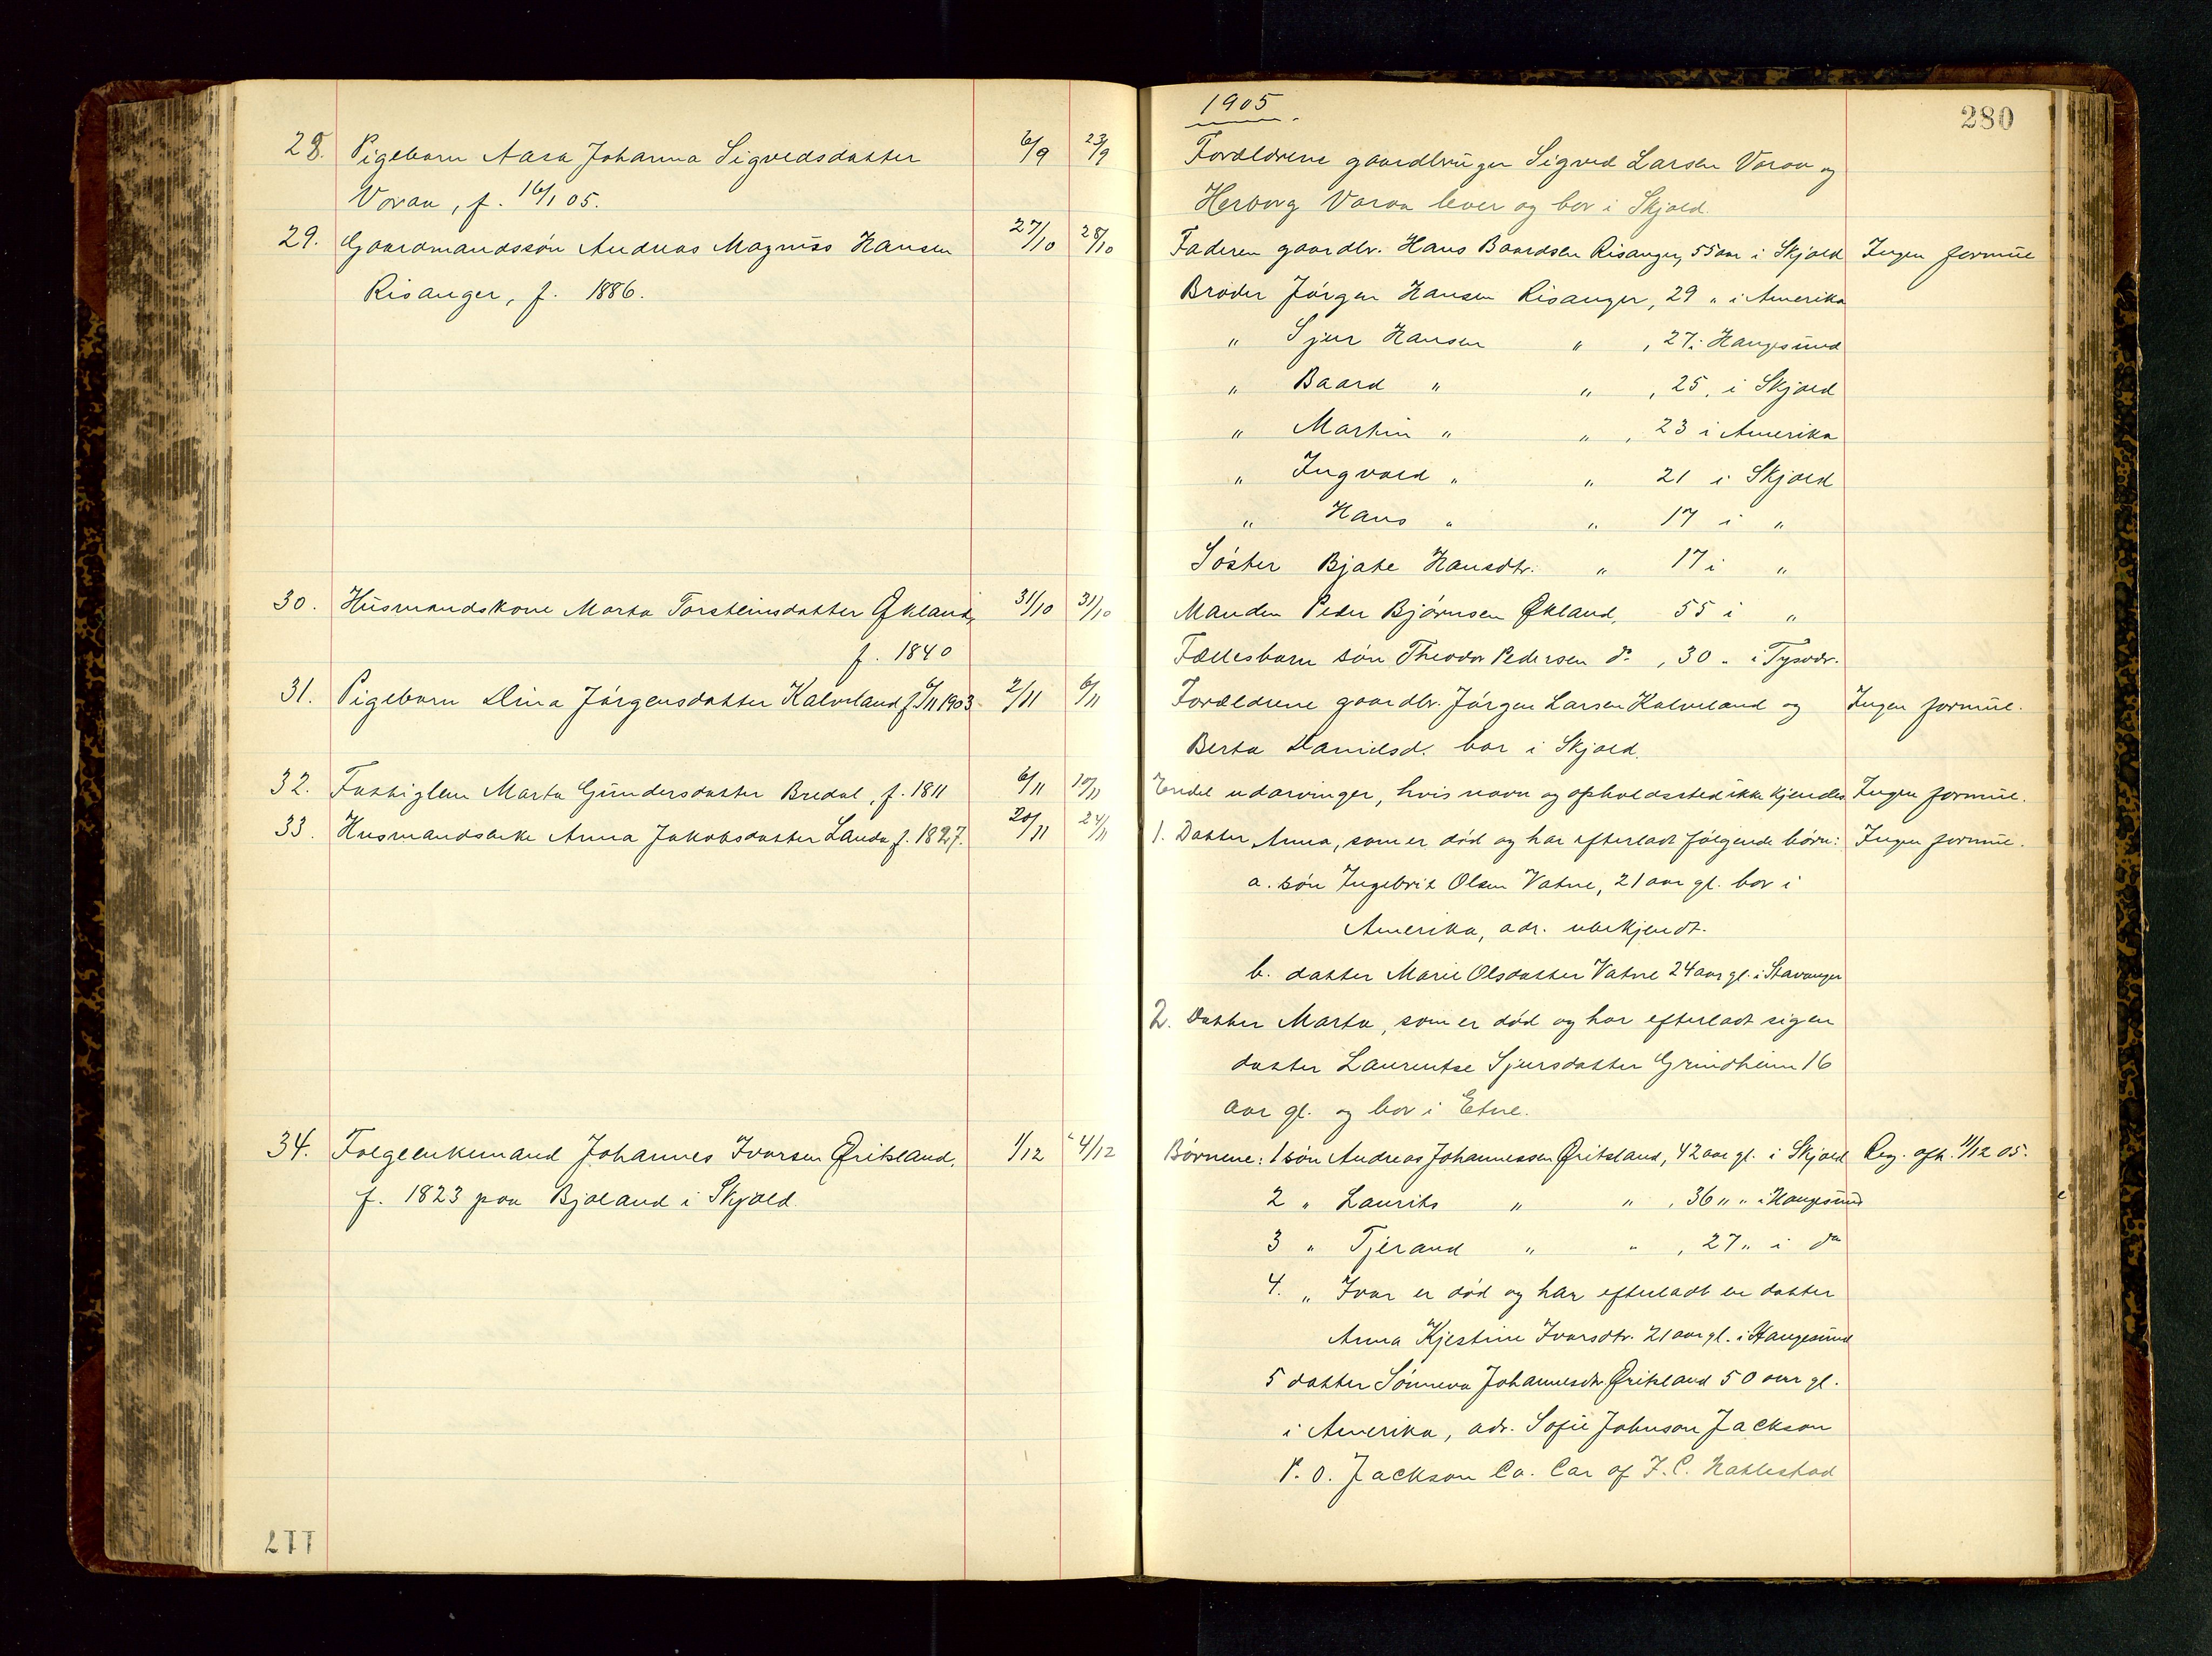 28. Pigebarn Aasa Johanna Sigvedsdatter 6/9 23/9
Voraa, f. 16/1 05.
29. Gaardmandssøn Andreas Magnus Hansen 27/10 28/10
Risanger, f. 1886.
30. Husmandskone Marta Torsteinsdatter Økland, 31/10 31/10
f. 1840
31. Pigebarn Dina Jørgensdatter Kalveland f. 6/11 1903 2/11 6/11
32. Fattiglem Marta Gundersdatter Bredal, f. 1811 6/11 10/11
33. Husmandsenke Anna Jakobsdatter Landa f. 1827. 20/11 24/11
34. Folgeenkemand Johannes Ivarsen Øritsland, 1/12 4/12
f. 1823 paa Bjoland i Skjold.
117
1905.
280
Forældrene gaardbruger Sigved Larsen Voraa og
Herborg Voraa lever og bor i Skjold.
Faderen gaardbr. Hans Baardsen Risanger, 55 aar i Skjold Ingen formue
Broder Jørgen Hansen Risanger, 29 " i Amerika
" Sjur Hansen " , 27 i Haugesund
" Baard " " , 25, i Skjold
" Martin " " , 23 i Amerika
" Ingvald " " 21 i Skjold
" Hans " " 17 i "
Søster Bjate Hansdtr. " 17 i "
Manden Peder Bjørnsen Økland, 55 i "
Fællesbarn søn Theodor Pedersen do , 30 " i Tysvær.
Forældrene gaardbr. Jørgen Larsen Kalveland og Ingen formue.
Berta Danielsd. bor i Skjold.
Endel udarvinger, hvis navn og opholdssted ikke kjendes Ingen formue.
1. Datter Anna, som er død og har efterladt følgende børn: Ingen formue.
a. søn Ingebrit Olsen Vatne, 21 aar gl. bor i
Amerika, adr. ubekjendt.
b. datter Marie Olsdatter Vatne 24 aar gl. i Stavanger
2. Datter Marta, som er død og har efterladt sig en
datter Laurentse Sjursdatter Grindheim 16
aar gl. og bor i Etne.
Børnene: 1 søn Andreas Johannessen Øritsland, 42 aar gl. i Skjold Reg. afh. 11/12 05.
2 " Laurits " " , 36 " " i Haugesund
3 " Tjerand " " , 27 " i do
4. " Ivar er død og har efterladt en datter
Anna Kjestine Ivarsdtr. 21 aar gl. i Haugesund
5 datter Sønneva Johannesdtr Øritsland 50 aar gl.
i Amerika, adr. Sofie Johnson Jackson
P.O. Jackson Co. Car of F.C.